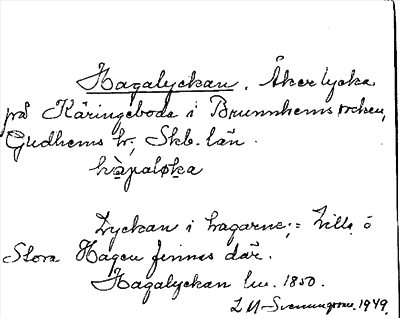 Hagalyckan. Åkerlycka
på Käringeboda i Brunnhems socken,
Gudhems hr, Skb. län.
hàɡaløka
Lyckan i hagarne; = Lilla o
Stora Hagen finnes där.
Hagalyckan lm. 1850.
1949.